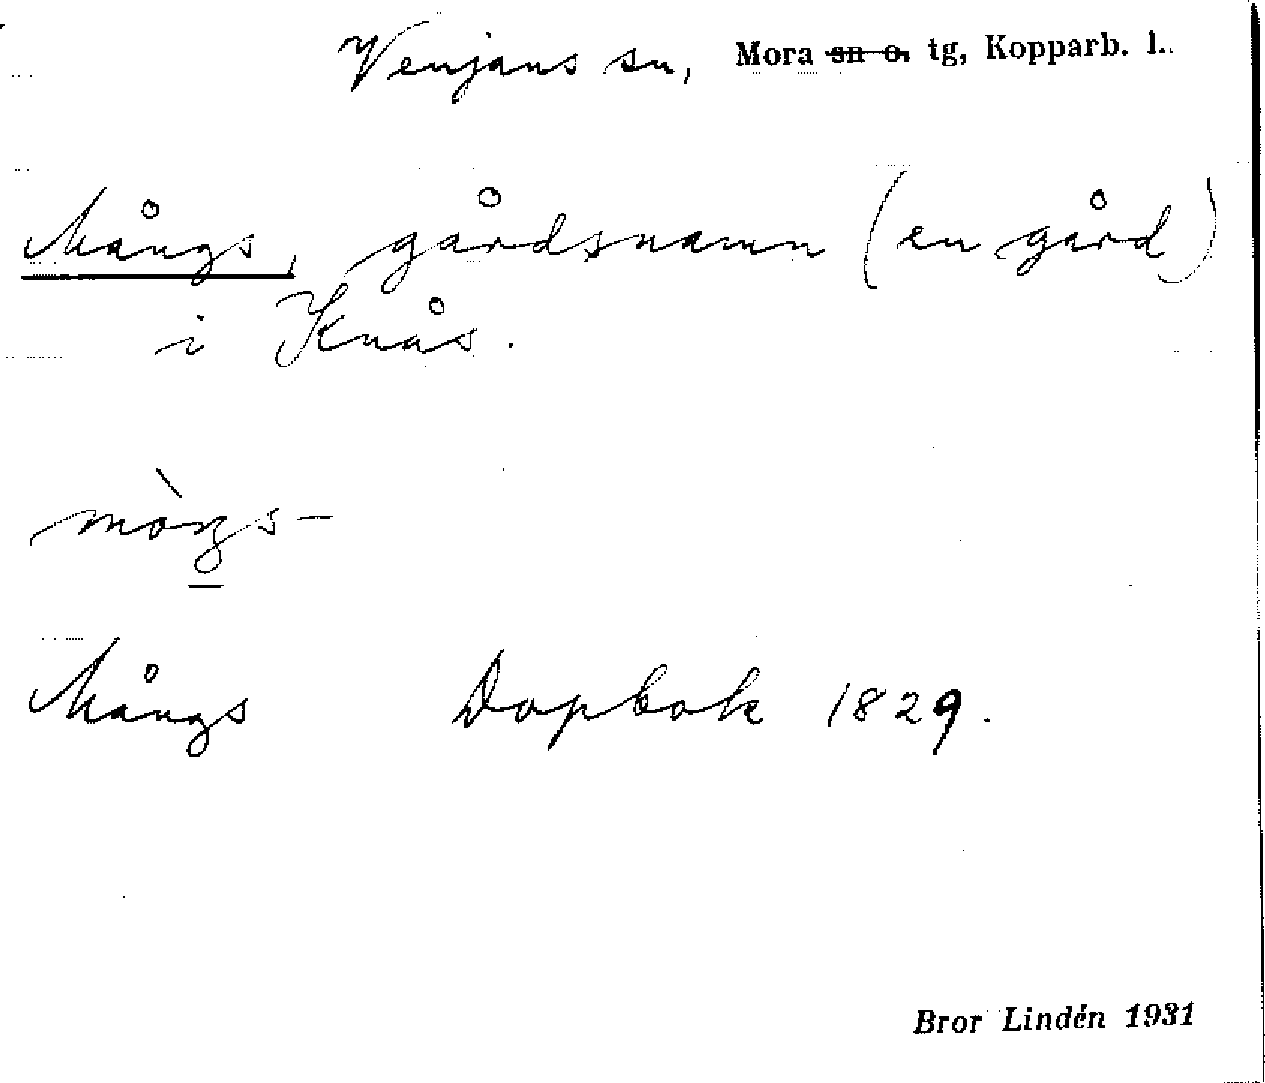 Venjans sn, Mora sn o. tg, Kopparb. l.
Mångs, gårdsnamn (en gård)
i Knås.
mòŋs-
Mångs Dopbok 1829.
Bror Lindén 1931